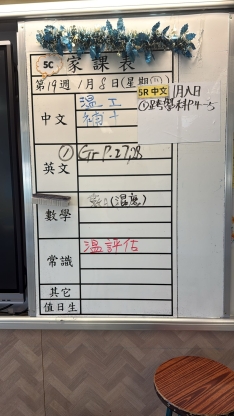 5C
家課表
第19週 1月8日(星期四)
中文
溫工
5R 中文 1月8日
英文
① Gr P.27,28
數學
(溫應)
常識
溫評估
其它
值日生